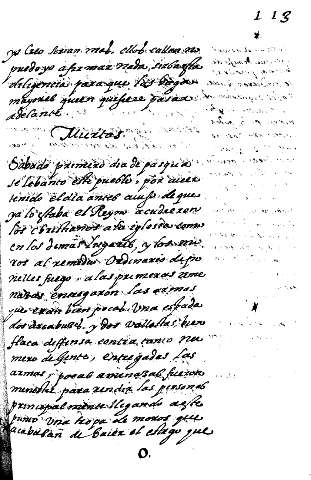 113
yo creo serian mas, ellos callan no
puedo yo afirmar nada, sirba esta
diligencia para que las haga
mayores quien quisiere pasar
adelante
Murtas.
Sabado primero dia de pasqua
se lebanto este pueblo, por aver
tenido el dia antes aviso de que
ya lo estaba el Reyno acudieron
los christianos a la iglesia como
en los demas lugares, y los mo
ros al remedio ordinario de po
nelles fuego, a las primeras
entregaron las armas
que eran bien pocas una espada
dos arcabuses, y dos vallestas, bien
flaca deffensa contra tanto nu
mero de gente, entregadas las
armas, pocas amenazas fueron
menester para rendir las personas
principalmente llegando a este
punto una tropa de moros que
acababan de hacer el estrago que
O.